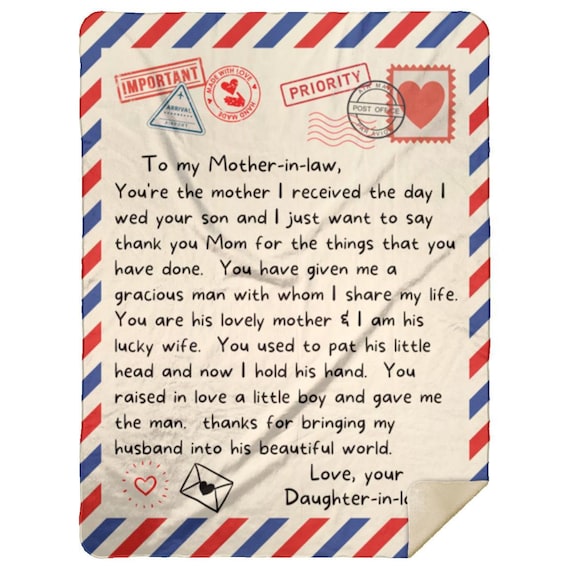 IMPORTANT
ARRIVAL
MADE WITH LOVE
HAND MADE
PRIORITY
POST OFFICE
To my Mother-in-law,
You're the mother I received the day I
wed your son and I just want to say
thank you Mom for the things that you
have done. You have given me a
gracious man with whom I share my life.
You are his lovely mother & I am his
lucky wife. You used to pat his little
head and now I hold his hand. You
raised in love a little boy and gave me
the man. thanks for bringing my
husband into his beautiful world.
Love, your
Daughter-in-l